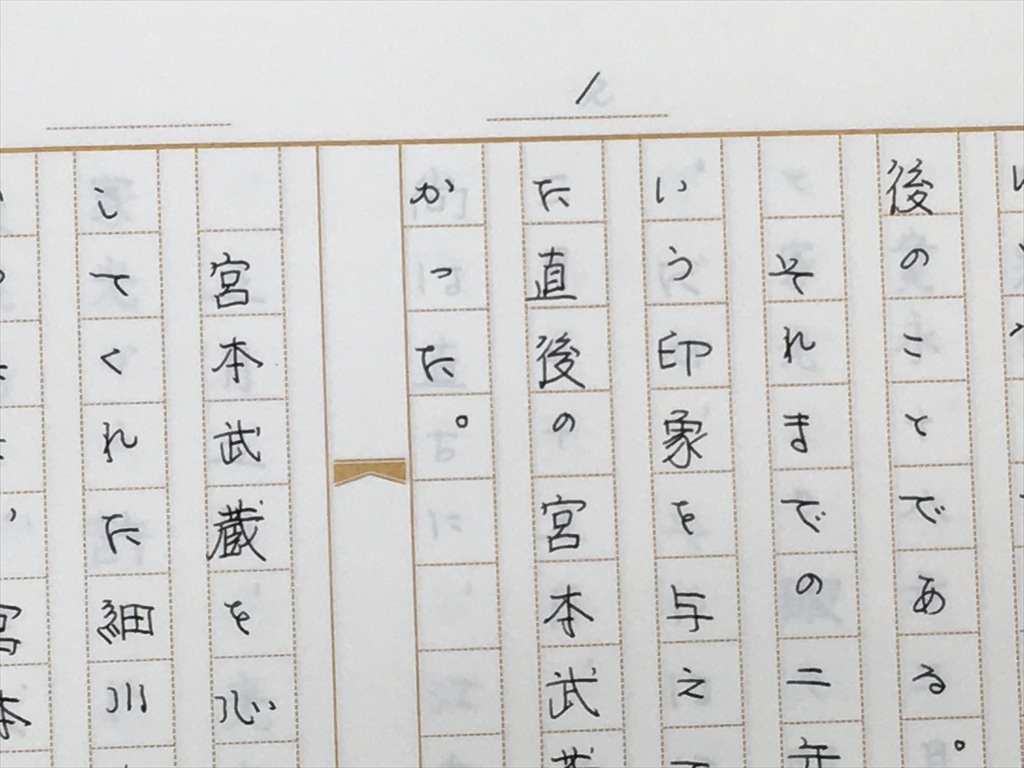 後のことである。
それまでの二年
いう印象を与えて
た直後の宮本武蔵
かった。
宮本武蔵を心
してくれた細川
宮本